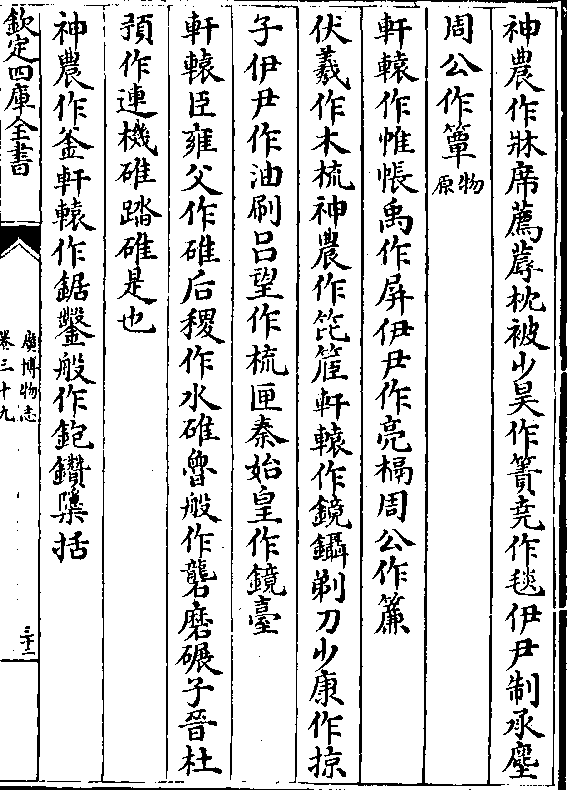 神農作牀席薦蓐枕被少昊作簀堯作毯伊尹制承塵
周公作簟物原
軒轅作帷帳禹作屏伊尹作亮槅周公作簾
伏羲作木梳神農作笓篦軒轅作鏡鑷剃刀少康作掠
子伊尹作油刷呂望作梳匣秦始皇作鏡臺
軒轅臣雍父作碓后稷作水碓魯般作礱磨碾子晉杜
預作連機碓踏碓是也
神農作釜軒轅作鋸鑿般作鉋鑽檃括
欽定四庫全書
廣博物志
卷三十九
三十二